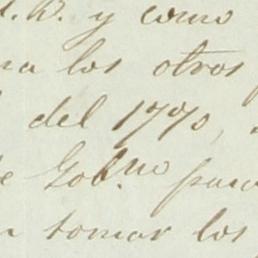 B. y como
los otros
del 1790,
Gob.no para
tomar los